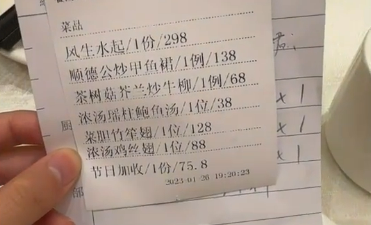 菜品
风生水起/1份/298
顺德公炒甲鱼裙/1例/138
茶树菇芥兰炒牛柳/1例/68
浓汤瑶柱鲍鱼汤/1位/38
菜胆竹笙翅/1位/128
浓汤鸡丝翅/1位/88
节日加收/1份/75.8
2023-01-26 19:20:23
x 1
x 1
x 1